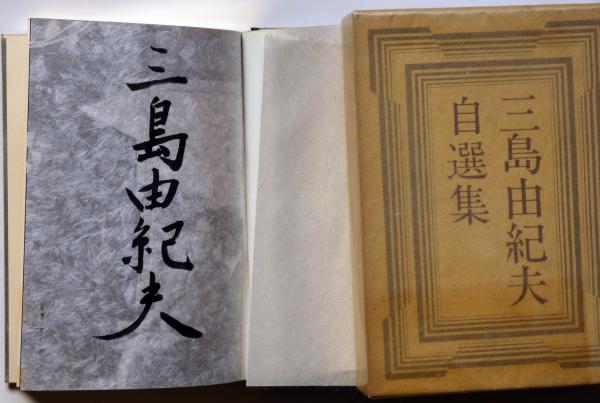 三島由紀夫
三島由紀夫
自選集